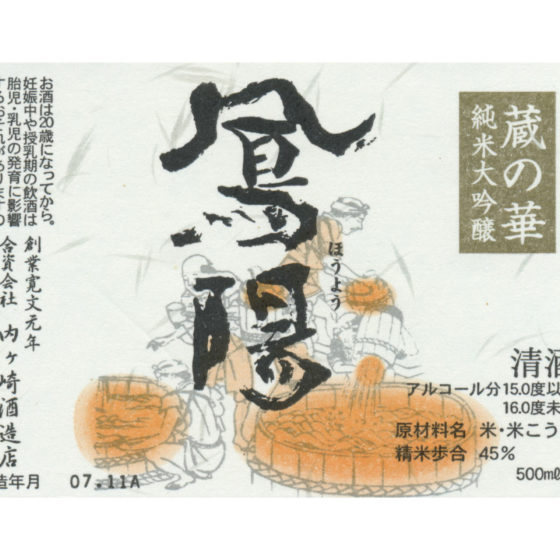 鳳陽
ほうよう
蔵の華
純米大吟醸
清酒
アルコール分15.0度以
16.0度未
原材料名 米・米こう
精米歩合 45%
500mℓ
お酒は20歳になってから。
妊娠中や授乳期の飲酒は
胎児・乳児の発育に影響
創業寛文元年
合資会社 内ヶ崎酒造店
造年月 07.11A